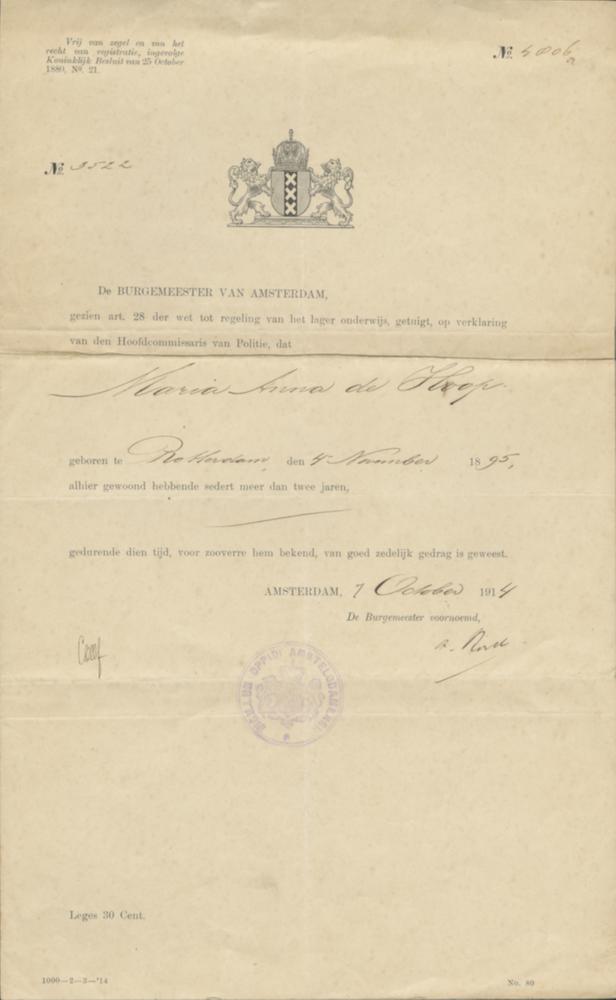 Vrij van zegel en van het
recht van registratie, ingevolge
Koninklijk Besluit van 25 October
1880, No. 21.
№ 4006a
№ 3522
De BURGEMEESTER VAN AMSTERDAM,
gezien art. 28 der wet tot regeling van het lager onderwijs, getuigt, op verklaring
van den Hoofdcommissaris van Politie, dat
Maria Anna de Hoop
geboren te Rotterdam, den 4 November 1895,
alhier gewoond hebbende sedert meer dan twee jaren,
gedurende dien tijd, voor zooverre hem bekend, van goed zedelijk gedrag is geweest.
AMSTERDAM, 7 October 1914
De Burgemeester voornoemd,
SIGILLUM OPPIDI AMSTELODAMENSI
Leges 30 Cent.
1000—2—3—'14
No. 80